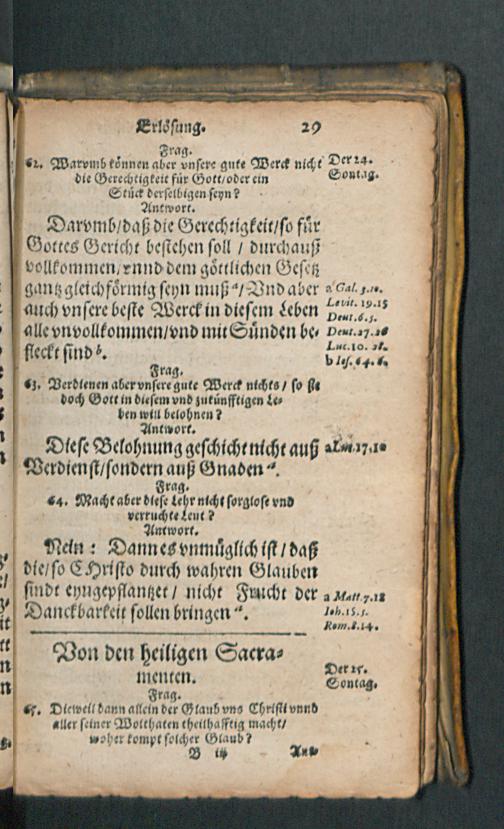 Erlösung. 29
Frag.
62. Warvmb können aber vnsere gute Werck nicht
die Gerechtigkeit für Gott/oder ein
Stück derselbigen seyn?
Der 24.
Sontag.
Antwort.
Darvmb/daß die Gerechtigkeit/so für
Gottes Gericht bestehen soll / durchauß
vollkommen/vnnd dem göttlichen Gesetz
gantz gleichförmig seyn muß a/Vnd aber
auch vnsere beste Werck in diesem Leben
alle vnvollkommen/vnd mit Sünden be-
fleckt sind b.
a Gal. 3.10.
Levit. 19.15
Deut.6.5.
Deut.27.26
Luc.10. 28.
b Ies. 64.6.
Frag.
63. Verdienen aber vnsere gute Werck nichts / so sie
doch Gott in diesem vnd zukünfftigen Le-
ben will belohnen?
Antwort.
Diese Belohnung geschicht nicht auß
Verdienst/sondern auß Gnaden a.
a Luc.17.10
Frag.
64. Macht aber diese Lehr nicht sorglose vnd
verruchte Leut?
Antwort.
Nein : Dann es vnmüglich ist / daß
die/so CHristo durch wahren Glauben
sindt eyngepflantzet / nicht Frucht der
Danckbarkeit sollen bringen a.
a Matt.7.18
Ioh.15.5.
Rom.8.14.
Von den heiligen Sacra-
menten.
Der 25.
Sontag.
Frag.
65. Dieweil dann allein der Glaub vns Christi vnnd
aller seiner Wolthaten theilhafftig macht/
woher kompt solcher Glaub?
B iij Ant-